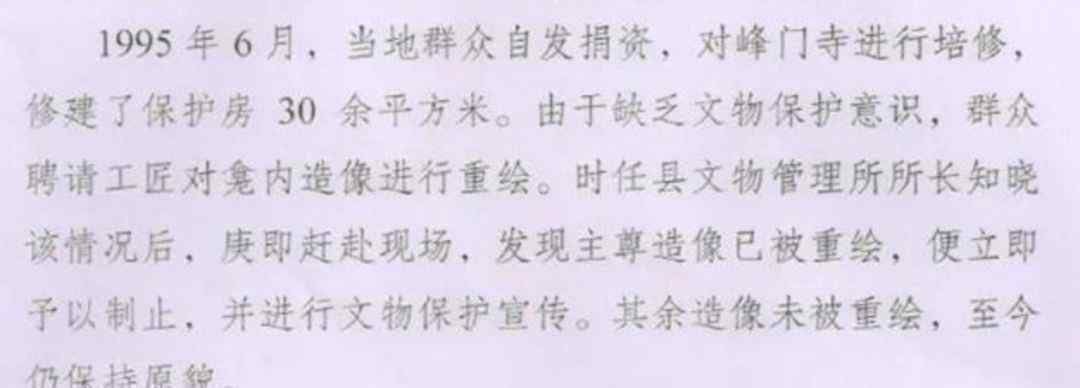 1995 年 6 月，当地群众自发捐资，对峰门寺进行培修，
修建了保护房 30 余平方米。由于缺乏文物保护意识，群众
聘请工匠对龛内造像进行重绘。时任县文物管理所所长知晓
该情况后，庚即赶赴现场，发现主尊造像已被重绘，便立即
予以制止，并进行文物保护宣传。其余造像未被重绘，至今
仍保持原貌。